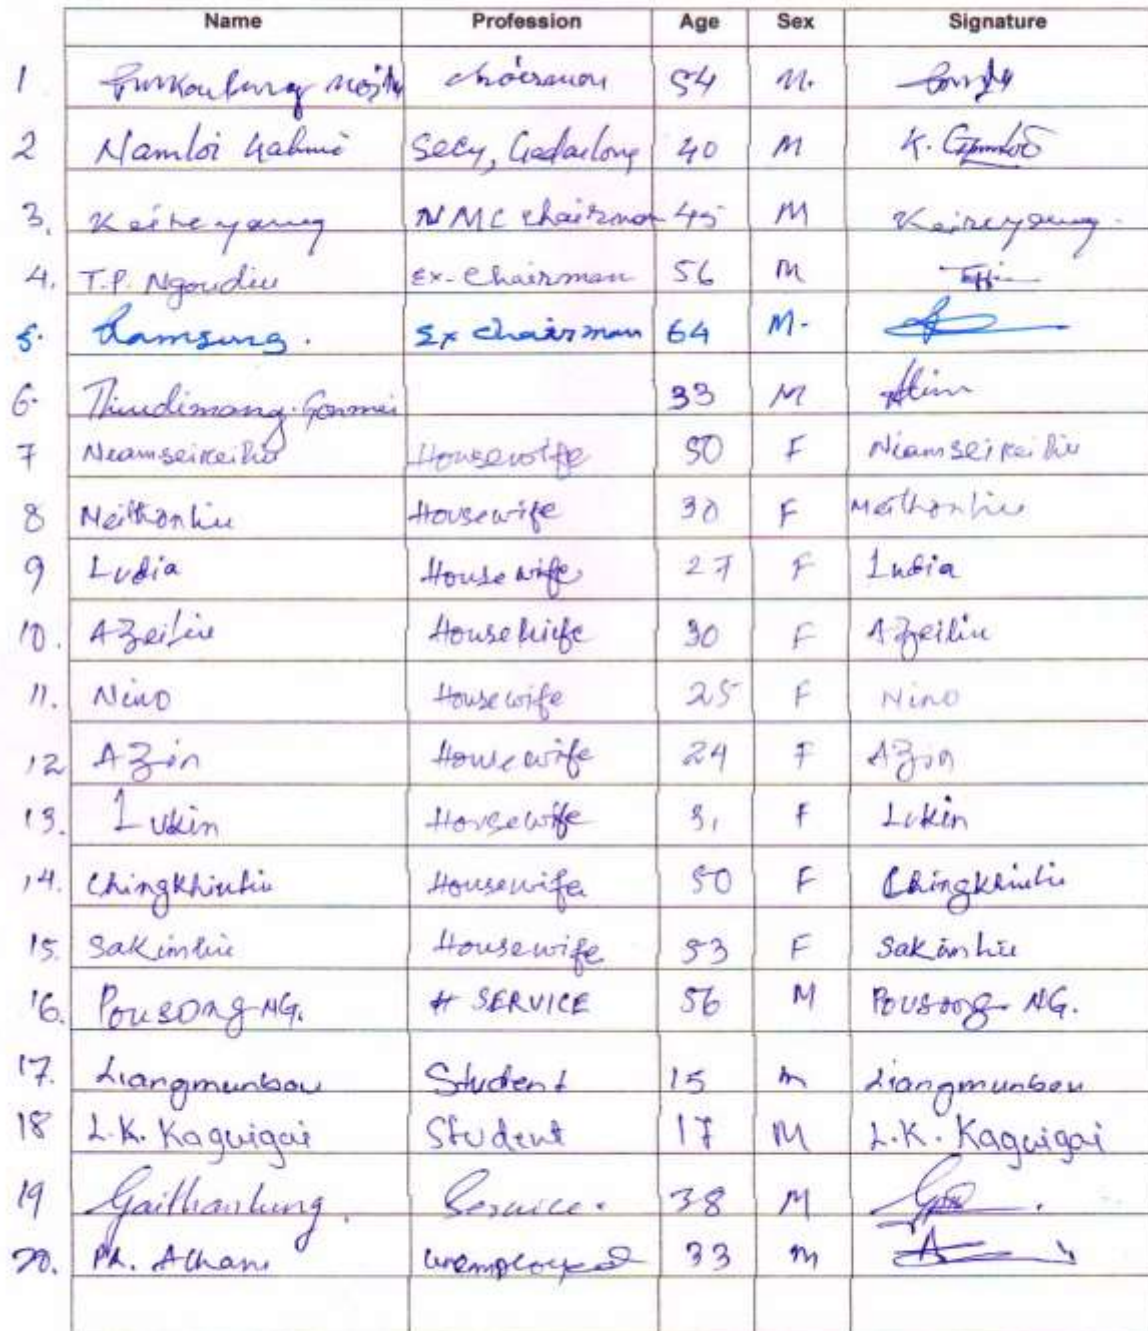 Name Profession Age Sex Signature
1 chairman 54 M.
2 Namloi Kahmei Secy, Gadailong 40 M K.
3. Keireyang NMC Chairman 45 M Keireyang.
4. T.P. Ngoudiu Ex-Chairman 56 M
5. Ramsung. Ex chairman 64 M.
6. Thiudimang. Gonmei 33 M
7 Niamseikeiliu Housewife 50 F Niamseikeiliu
8 Meithonliu Housewife 30 F Meithonliu
9 Ludia Housewife 27 F Ludia
10. Azeiliu Housewife 30 F Azeiliu
11. Nino Housewife 25 F Nino
12 Azin Housewife 24 F Azin
13. Lukin Housewife 31 F Lukin
14. Chingkhiuliu Housewife 50 F Chingkhiuliu
15. Sakimliu Housewife 53 F Sakimliu
16. Pousong NG. # SERVICE 56 M Pousong NG.
17. Liangmunbou Student 15 m Liangmunbou
18 L.K. Kaguigai Student 17 M L.K. Kaguigai
19 Gaithanlung. Service. 38 M
20. PR. Athani unemployed 33 m